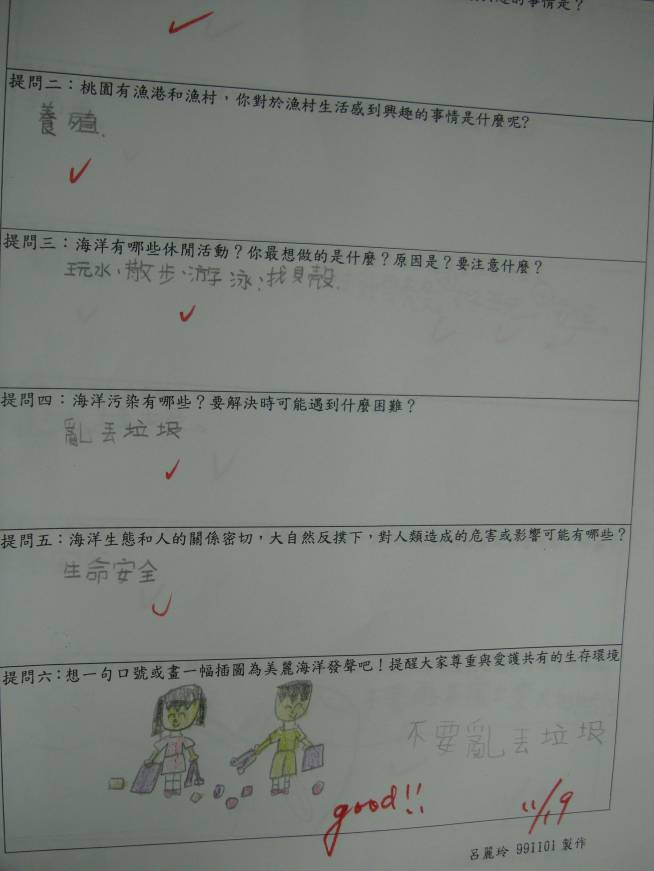 的事情是？
提問二：桃園有漁港和漁村，你對於漁村生活感到興趣的事情是什麼呢?
養殖.
提問三：海洋有哪些休閒活動？你最想做的是什麼？原因是？要注意什麼？
玩水、散步、游泳、找貝殼.
提問四：海洋污染有哪些？要解決時可能遇到什麼困難？
亂丟垃圾
提問五：海洋生態和人的關係密切，大自然反撲下，對人類造成的危害或影響可能有哪些？
生命安全
提問六：想一句口號或畫一幅插圖為美麗海洋發聲吧！提醒大家尊重與愛護共有的生存環境
不要亂丟垃圾
good!!
11/19
呂麗玲 991101 製作